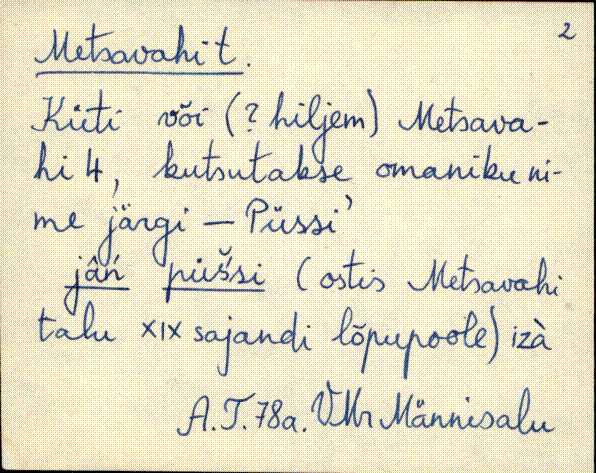 2
Metsavahi t.
Küti või (? hiljem) Metsava-
hi 4, kutsutakse omaniku ni-
me järgi – Püssi’
jâń püšsi (ostis Metsavahi
talu XIX sajandi lõpupoole) izà
A.T. 78a. VMr Männisalu